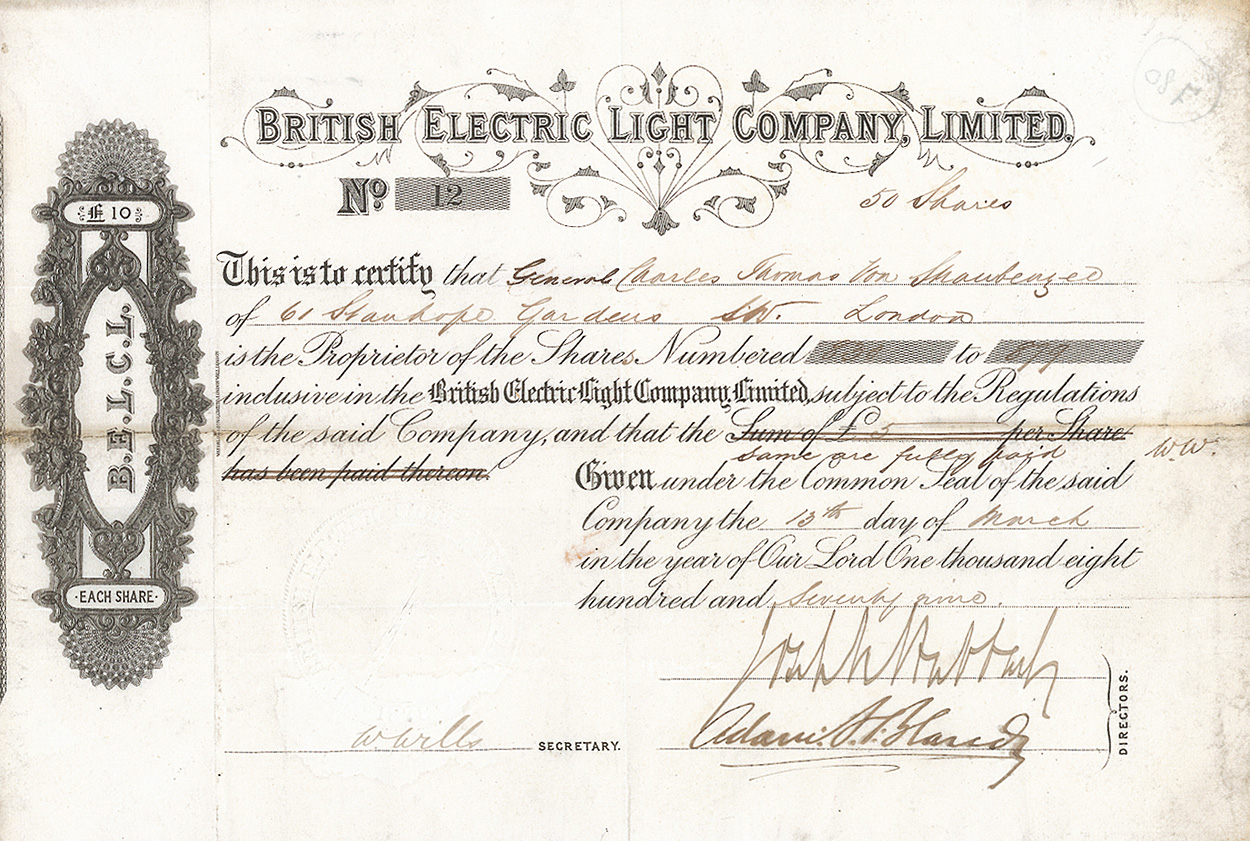 BRITISH ELECTRIC LIGHT COMPANY, LIMITED.
No. 12
50 Shares
£10
B.E.L.C.L.
EACH SHARE
This is to certify that General Charles Thomas Von Straubenzee
of 61 Stanhope Gardens S.W. London
is the Proprietor of the Shares Numbered to 699
inclusive in the British Electric Light Company, Limited, subject to the Regulations
of the said Company, and that the Sum of £ 5 per Share
same are fully paid W.W.
has been paid thereon.
Given under the Common Seal of the said
Company the 13th day of March
in the year of Our Lord One thousand eight
hundred and Seventy nine.
W Wills SECRETARY.
Adam. S. Bland
DIRECTORS.